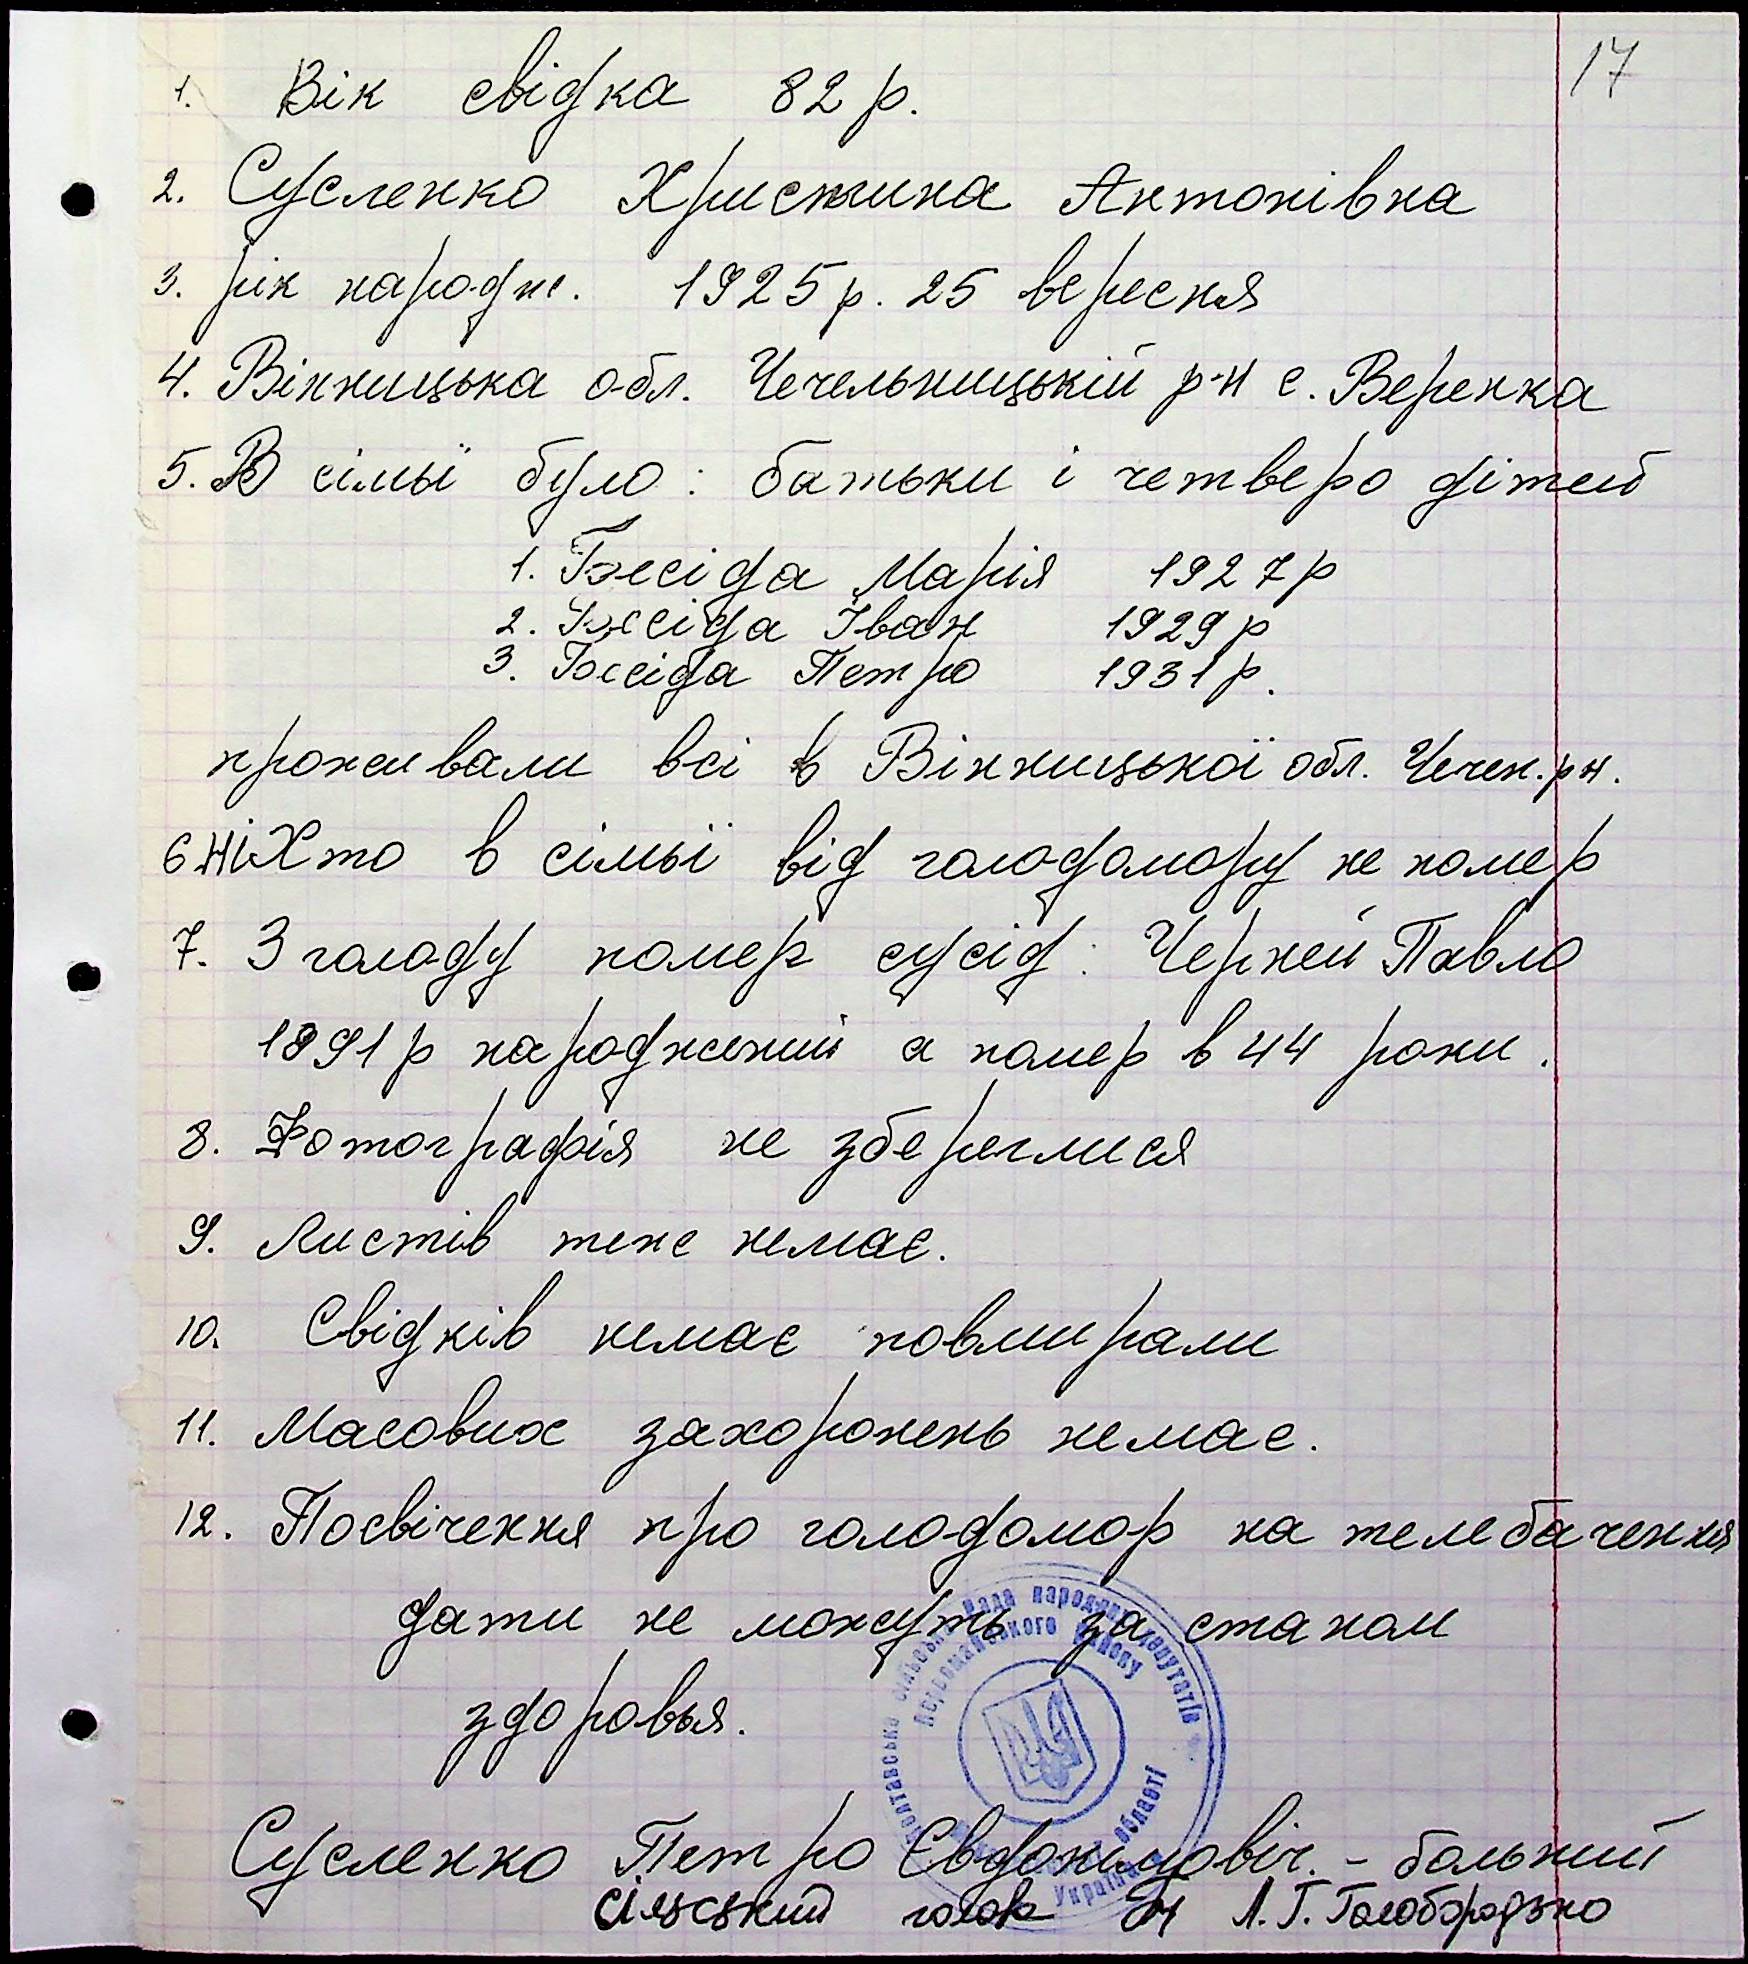 17
1. Вік свідка 82 р.
2. Сусленко Христина Антонівна
3. рік народж. 1925 р. 25 вересня
4. Вінницька обл. Чечельницькій р-н с. Веренка
5. В сімьї було: батьки і четверо дітей
1. Бжесіда Марія 1927 р
2. Іван 1929 р
3. Петро 1931 р.
проживали всі в Вінницької обл. Чечен. рн.
6 ніхто в сімьї від голодомору не помер
7. З голоду помер сусід: Черней Павло
1891 р народжений а помер в 44 роки.
8. Фотографія не збереглися
9. Листів теж немає.
10. Свідків немає повмирали
11. Масових захоронень немає.
12. Посвічення про голодомор на телебачення
дати не можуть за станом
здоровья.
Сусленко Петро Євдокимовіч. - больний
сільський голова Л.Г. Голобородько
Полтавська сільська рада народних депутатів
Первомайського району
області
Україна